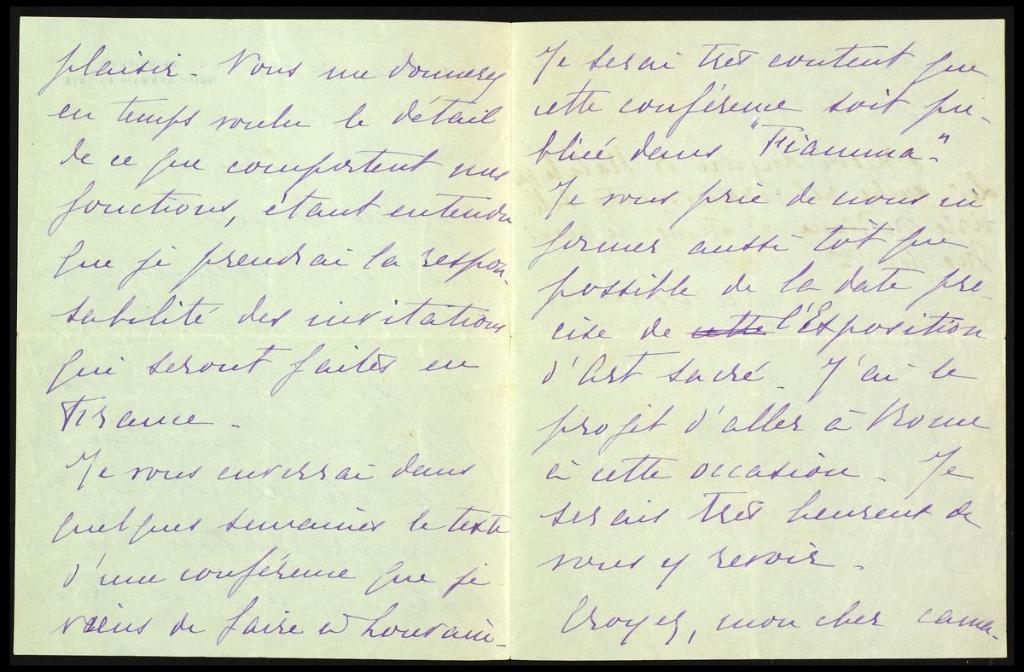 plaisir. Vous me donnerez
en temps voulu le détail
de ce que comportent mes
fonctions, étant entendu
que je prendrai la respon-
sabilité des invitations
qui seront faites en
France.
Je vous enverrai dans
quelques semaines le texte
d'une conférence que je
viens de faire à Louvain.
Je serai très content que
cette conférence soit pu-
bliée dans "Fiamma".
Je vous prie de nous in
former aussi tôt que
possible de la date pré-
cise de cette l'Exposition
d'Art sacré. J'ai le
projet d'aller à Rome
à cette occasion. Je
serais très heureux de
vous y revoir.
Croyez, mon cher cama-